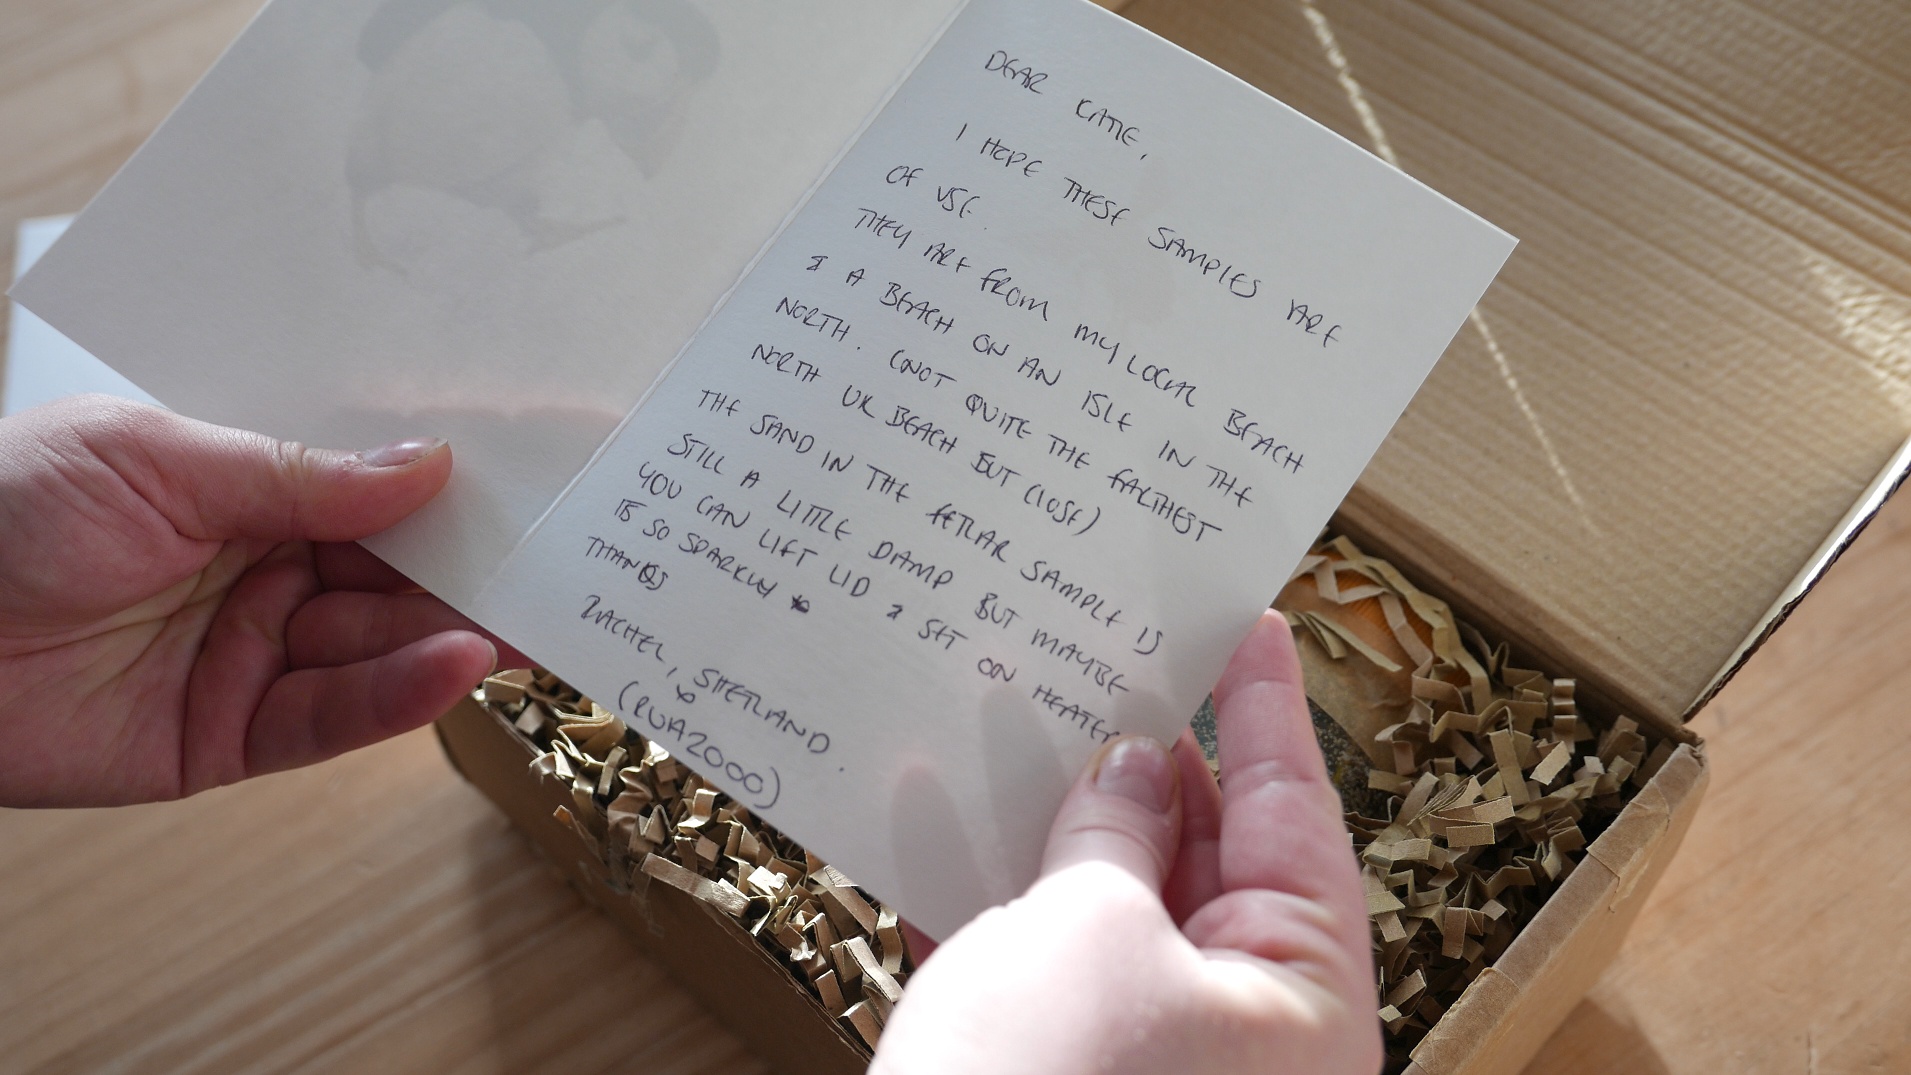 DEAR KATIE,
I HOPE THESE SAMPLES ARE
OF USE.
THEY ARE FROM MY LOCAL BEACH
& A BEACH ON AN ISLE IN THE
NORTH. (NOT QUITE THE FARTHEST
NORTH UK BEACH BUT CLOSE)
THE SAND IN THE FETLAR SAMPLE IS
STILL A LITTLE DAMP BUT MAYBE
YOU CAN LIFT LID & SET ON HEATER
IS SO SPARKLY
THANKS
RACHEL, SHETLAND.
(RUA2000)